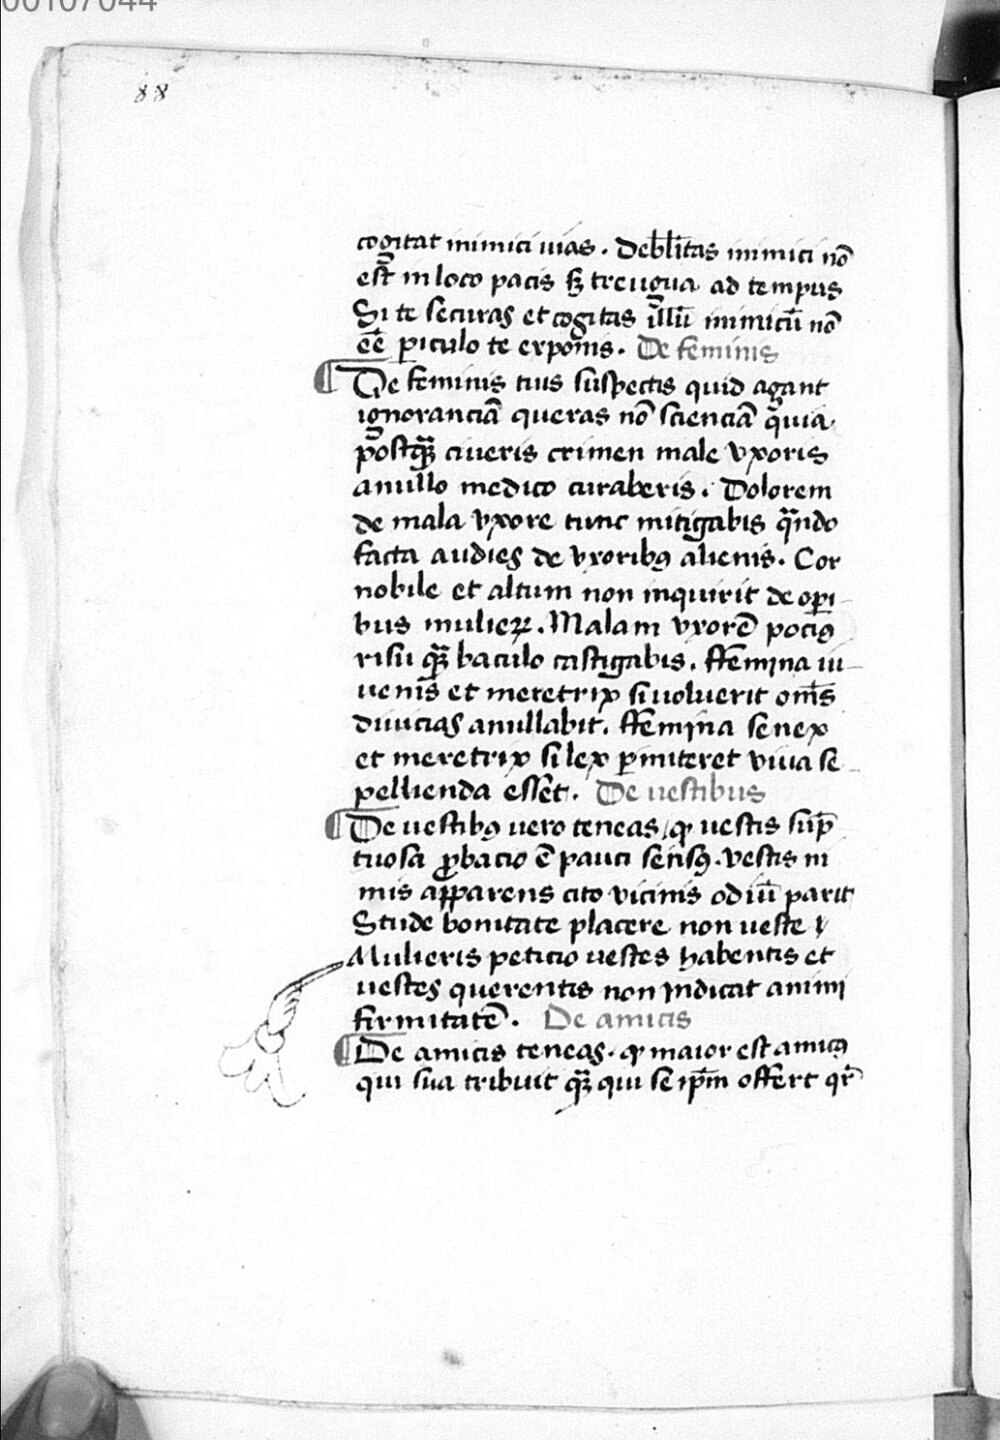 00107044
88
cogitat inimici uias. Deb̄litas inimici nō
est in loco pacis sꝫ treugua ad tempus
Si te securas et cogitas illū inimicū nō
eē ꝑiculo te exponis. De feminis
¶ De feminis tuis suspectis quid agant
ignoranciā queras nō scienciā quia
postqꝫ ciueris crimen male vxoris
anullo medico curaberis. Dolorem
de mala vxore tunc mitigabis qn̄do
facta audies de vxoribꝰ alienis. Cor
nobile et altum non inquirit de oꝑi
bus mulieꝝ. Malam vxorē pocig
risu qꝫ baculo castigabis. ffemina iu
uenis et meretrix si uoluerit om̄s
diuicias anullabit. ffemina senex
et meretrix si lex ꝑmiteret viua se
pellienda esset. De uestibus
¶ De uestibꝰ uero teneas, ꝙ uestis sūp
tuosa ꝓbacio ē pauci sensꝰ. vestis ni
mis apparens cito vicinis odiū parit
Stude bonitate placere non ueste
Mulieris peticio uestes habentis et
uestes querentis non indicat animi
firmitatē. De amicis
¶ De amicis teneas. ꝙ maior est amicꝰ
qui sua tribuit qꝫ qui se ip̄m offert qr̄